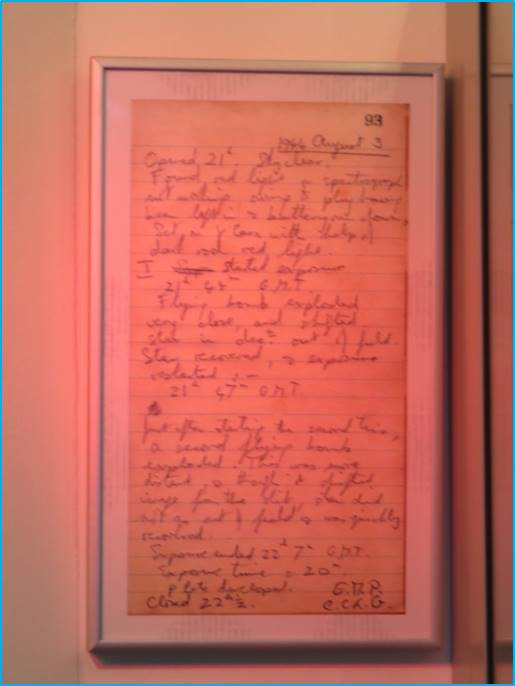 93
1944 August 3
Opened 21h. Sky clear.
Found red light on spectrograph
not working, owing to plug having
been left in & battery run down.
Set on γ Cass with help of
dark room red light.
I started exposure
21h 45m G.M.T.
Flying bomb exploded
very close, and shifted
star in decn out of field.
Star recovered, & exposure
restarted :-
21h 47m G.M.T.
Just after starting the second time,
a second flying bomb
exploded. This was more
distant, & though it shifted
image from the slit, star did
not go out of field & was quickly
recovered.
Exposure ended 22h 7m G.M.T.
Exposure time = 20m
Plate developed. E.M.P.
Cloud 22h½. C.C.L.G.